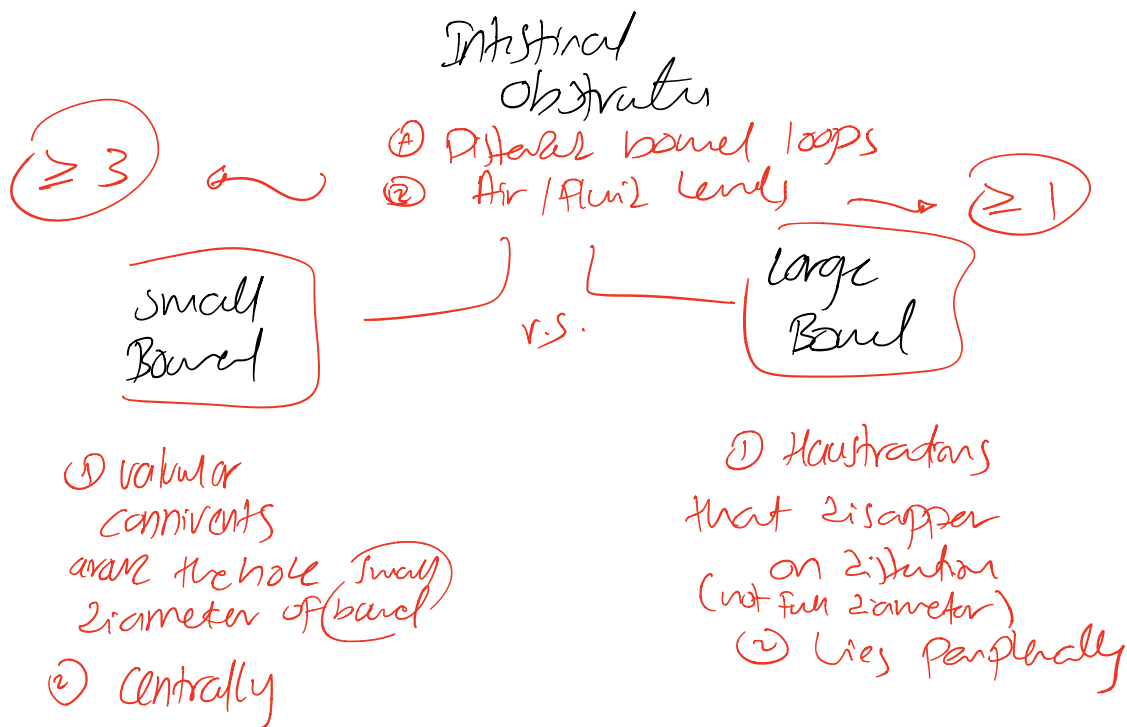 Intestinal
Obstruction
① Distended bowel loops
≥ 3
② Air / Fluid Levels
≥ 1
Small
Bowel
v.s.
Large
Bowel
① valvular
connivents
around the hole small
diameter of bowel
② Centrally
① Haustrations
that disapper
on distention
(not full diameter)
② Lies peripherally